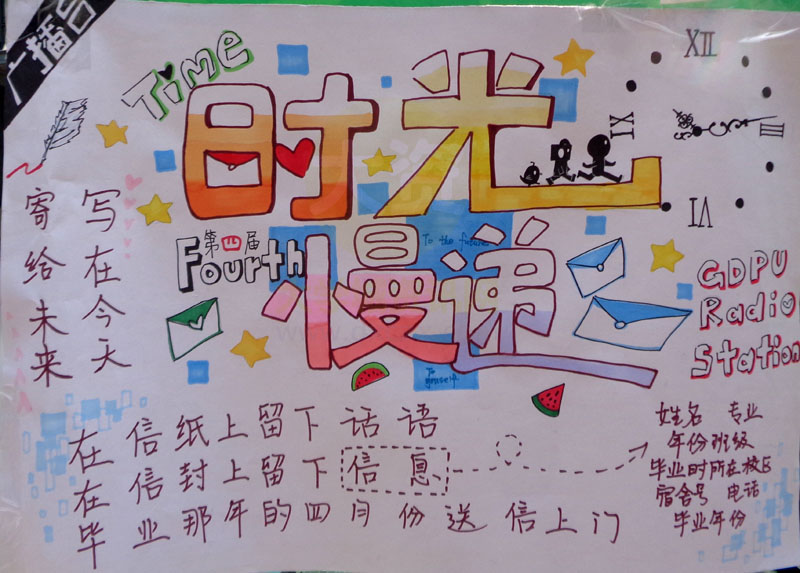 广播台
Time
时光
XII
XI
VI
第四届
Fourth
慢递
To the future
To
yourself
GDPU
Radio
Station
写在今天
寄给未来
在信纸上留下话语
在信封上留下信息
毕业那年的四月份送信上门
姓名 专业
年份班级
毕业时所在校区
宿舍号 电话
毕业年份